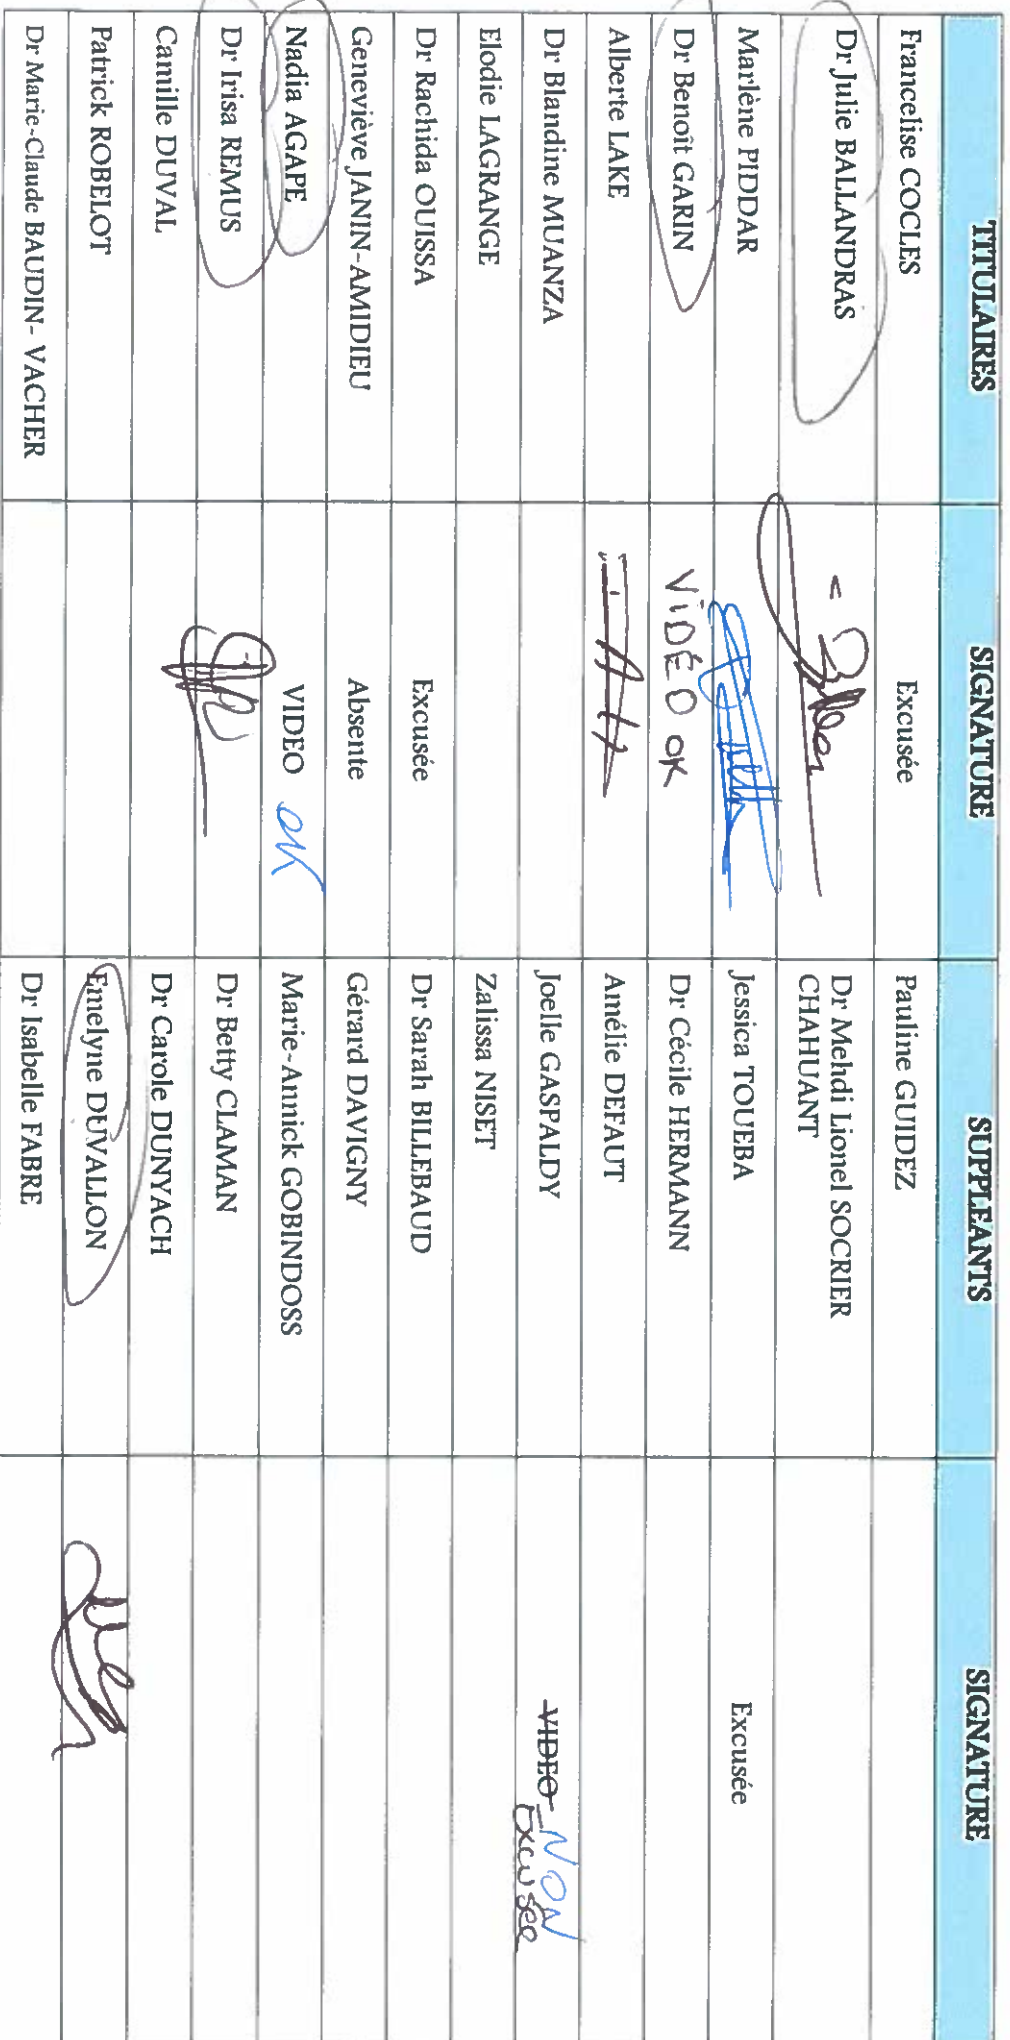 TITULAIRES SIGNATURE SUPPLEANTS SIGNATURE
Francelise COCLES Excusée Pauline GUIDEZ
Dr Julie BALLANDRAS Dr Mehdi Lionel SOCRIER
CHAHUANT
Marlène PIDDAR Jessica TOUEBA Excusée
Dr Benoît GARIN VIDÉO OK Dr Cécile HERMANN
Alberte LAKE Amélie DEFAUT
Dr Blandine MUANZA Joelle GASPALDY VIDEO NON
Excusée
Elodie LAGRANGE Zalissa NISET
Dr Rachida OUISSA Excusée Dr Sarah BILLEBAUD
Geneviève JANIN-AMIDIEU Absente Gérard DAVIGNY
Nadia AGAPE VIDEO OK Marie-Annick GOBINDOSS
Dr Irisa REMUS Dr Betty CLAMAN
Camille DUVAL Dr Carole DUNYACH
Patrick ROBELOT Emelyne DUVALLON
Dr Marie-Claude BAUDIN- VACHER Dr Isabelle FABRE